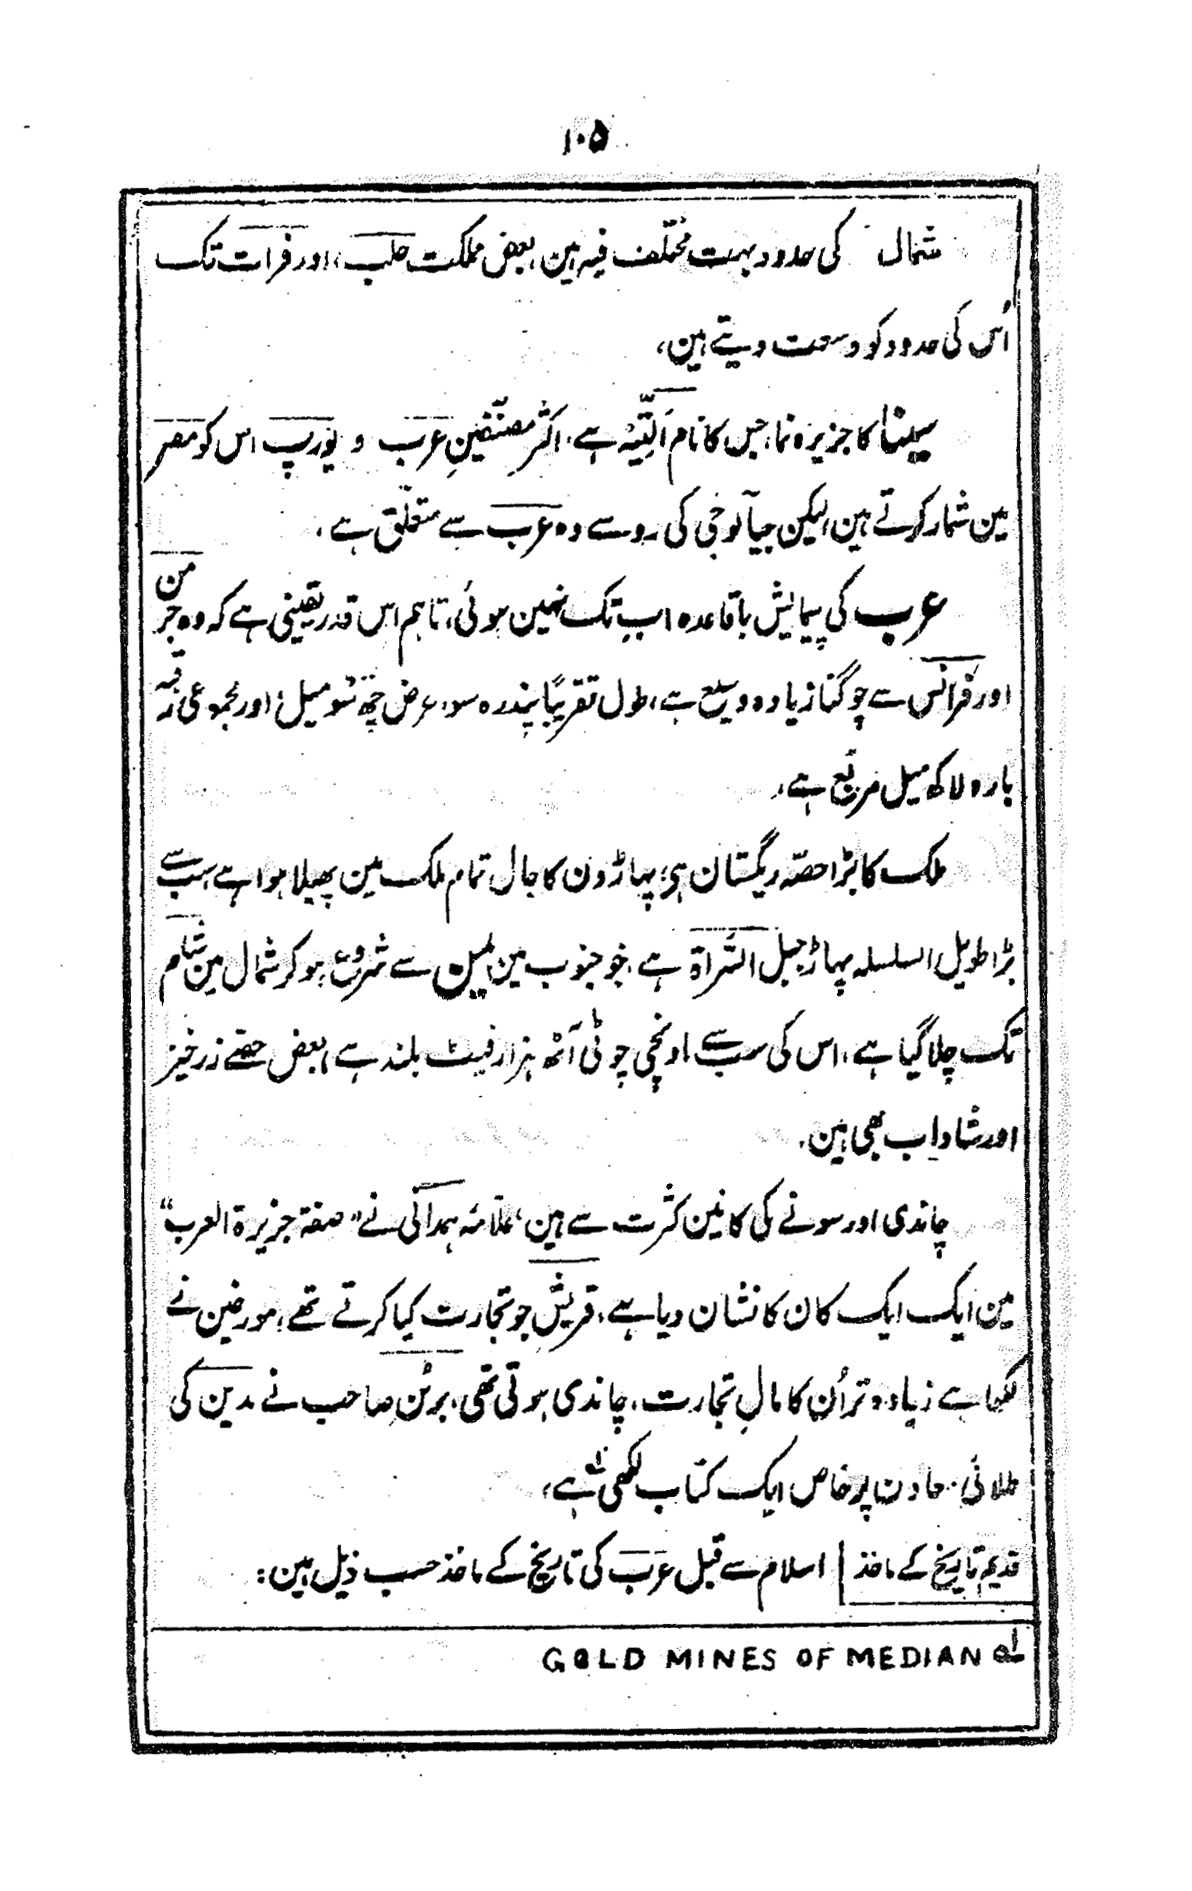 ۱۰۵
شمال کی حدود بہت مختلف فیہ ہین، بعض مملکت حلب، اور فرات تک
اُس کی حدود کو وسعت دیتے ہین،
سینا کا جزیرہ نما، جس کا نام اَلتِّیْہ ہے، اکثر مصنّفینِ عرب و یورپ اس کو مصر
مین شمار کرتے ہین، لیکن جیآلوجی کی رو سے وہ عرب سے متعلّق ہے،
عرب کی پیمایش باقاعدہ اب تک نہین ہوئی، تاہم اس قدر یقینی ہے کہ وہ جرمن
اور فرانس سے چوگنا زیادہ وسیع ہے، طول تقریبًا پندرہ سو، عرض چھ سَو میل، اور مجموعی رقبہ
بارہ لاکھ میل مربّع ہے،
ملک کا بڑا حصّہ ریگستان ہی، پہاڑون کا جال تمام ملک مین پھیلا ہوا ہے، سب سے
بڑا طویل السلسلہ پہاڑ جبل السّراۃ ہے، جو جنوب مین یمین سے شروع ہو کر شمال مین شام
تک چلا گیا ہے، اس کی سب سے اونچی چوٹی آٹھ ہزار فیٹ بلند ہے، بعض حصّے زرخیز
اور شاداب بھی ہین،
چاندی اور سونے کی کانین کثرت سے ہین، علّامہ ہمدانی نے "صفۃ جزیرۃ العرب"
مین ایک ایک کان کا نشان دیا ہے، قریش جو تجارت کیا کرتے تھے، مورخین نے
لکھا ہے زیادہ تر اُن کا مالِ تجارت، چاندی ہوتی تھی، برٹن صاحب نے مدین کی
طلائی معادن پر خاص ایک کتاب لکھی لہ ہے،
قدیم تاریخ کے ماخذ | اسلام سے قبل عرب کی تاریخ کے ماخذ حسب ذیل ہین:
لہ GOLD MINES OF MEDIAN